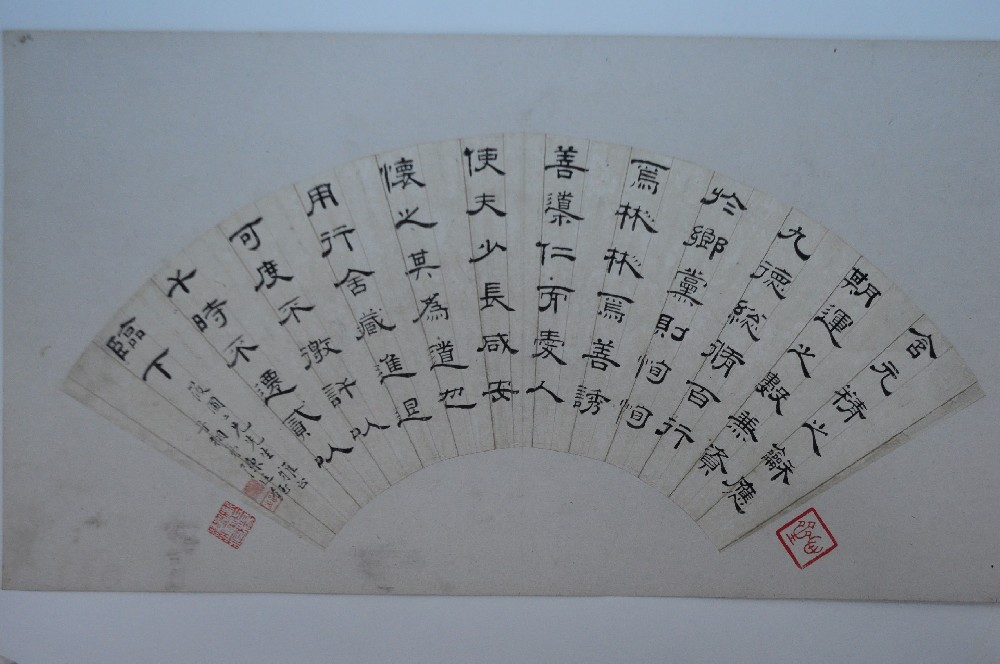 含元精之龢應
期運之數兼資
九德総脩百行
於鄉黨則恂恂
焉彬彬焉善誘
善導仁而愛人
使夫少長咸安
懷之其為道也
用行舍藏進退
可度不徼訐以
干時不遷貳以
臨下
先生雅正